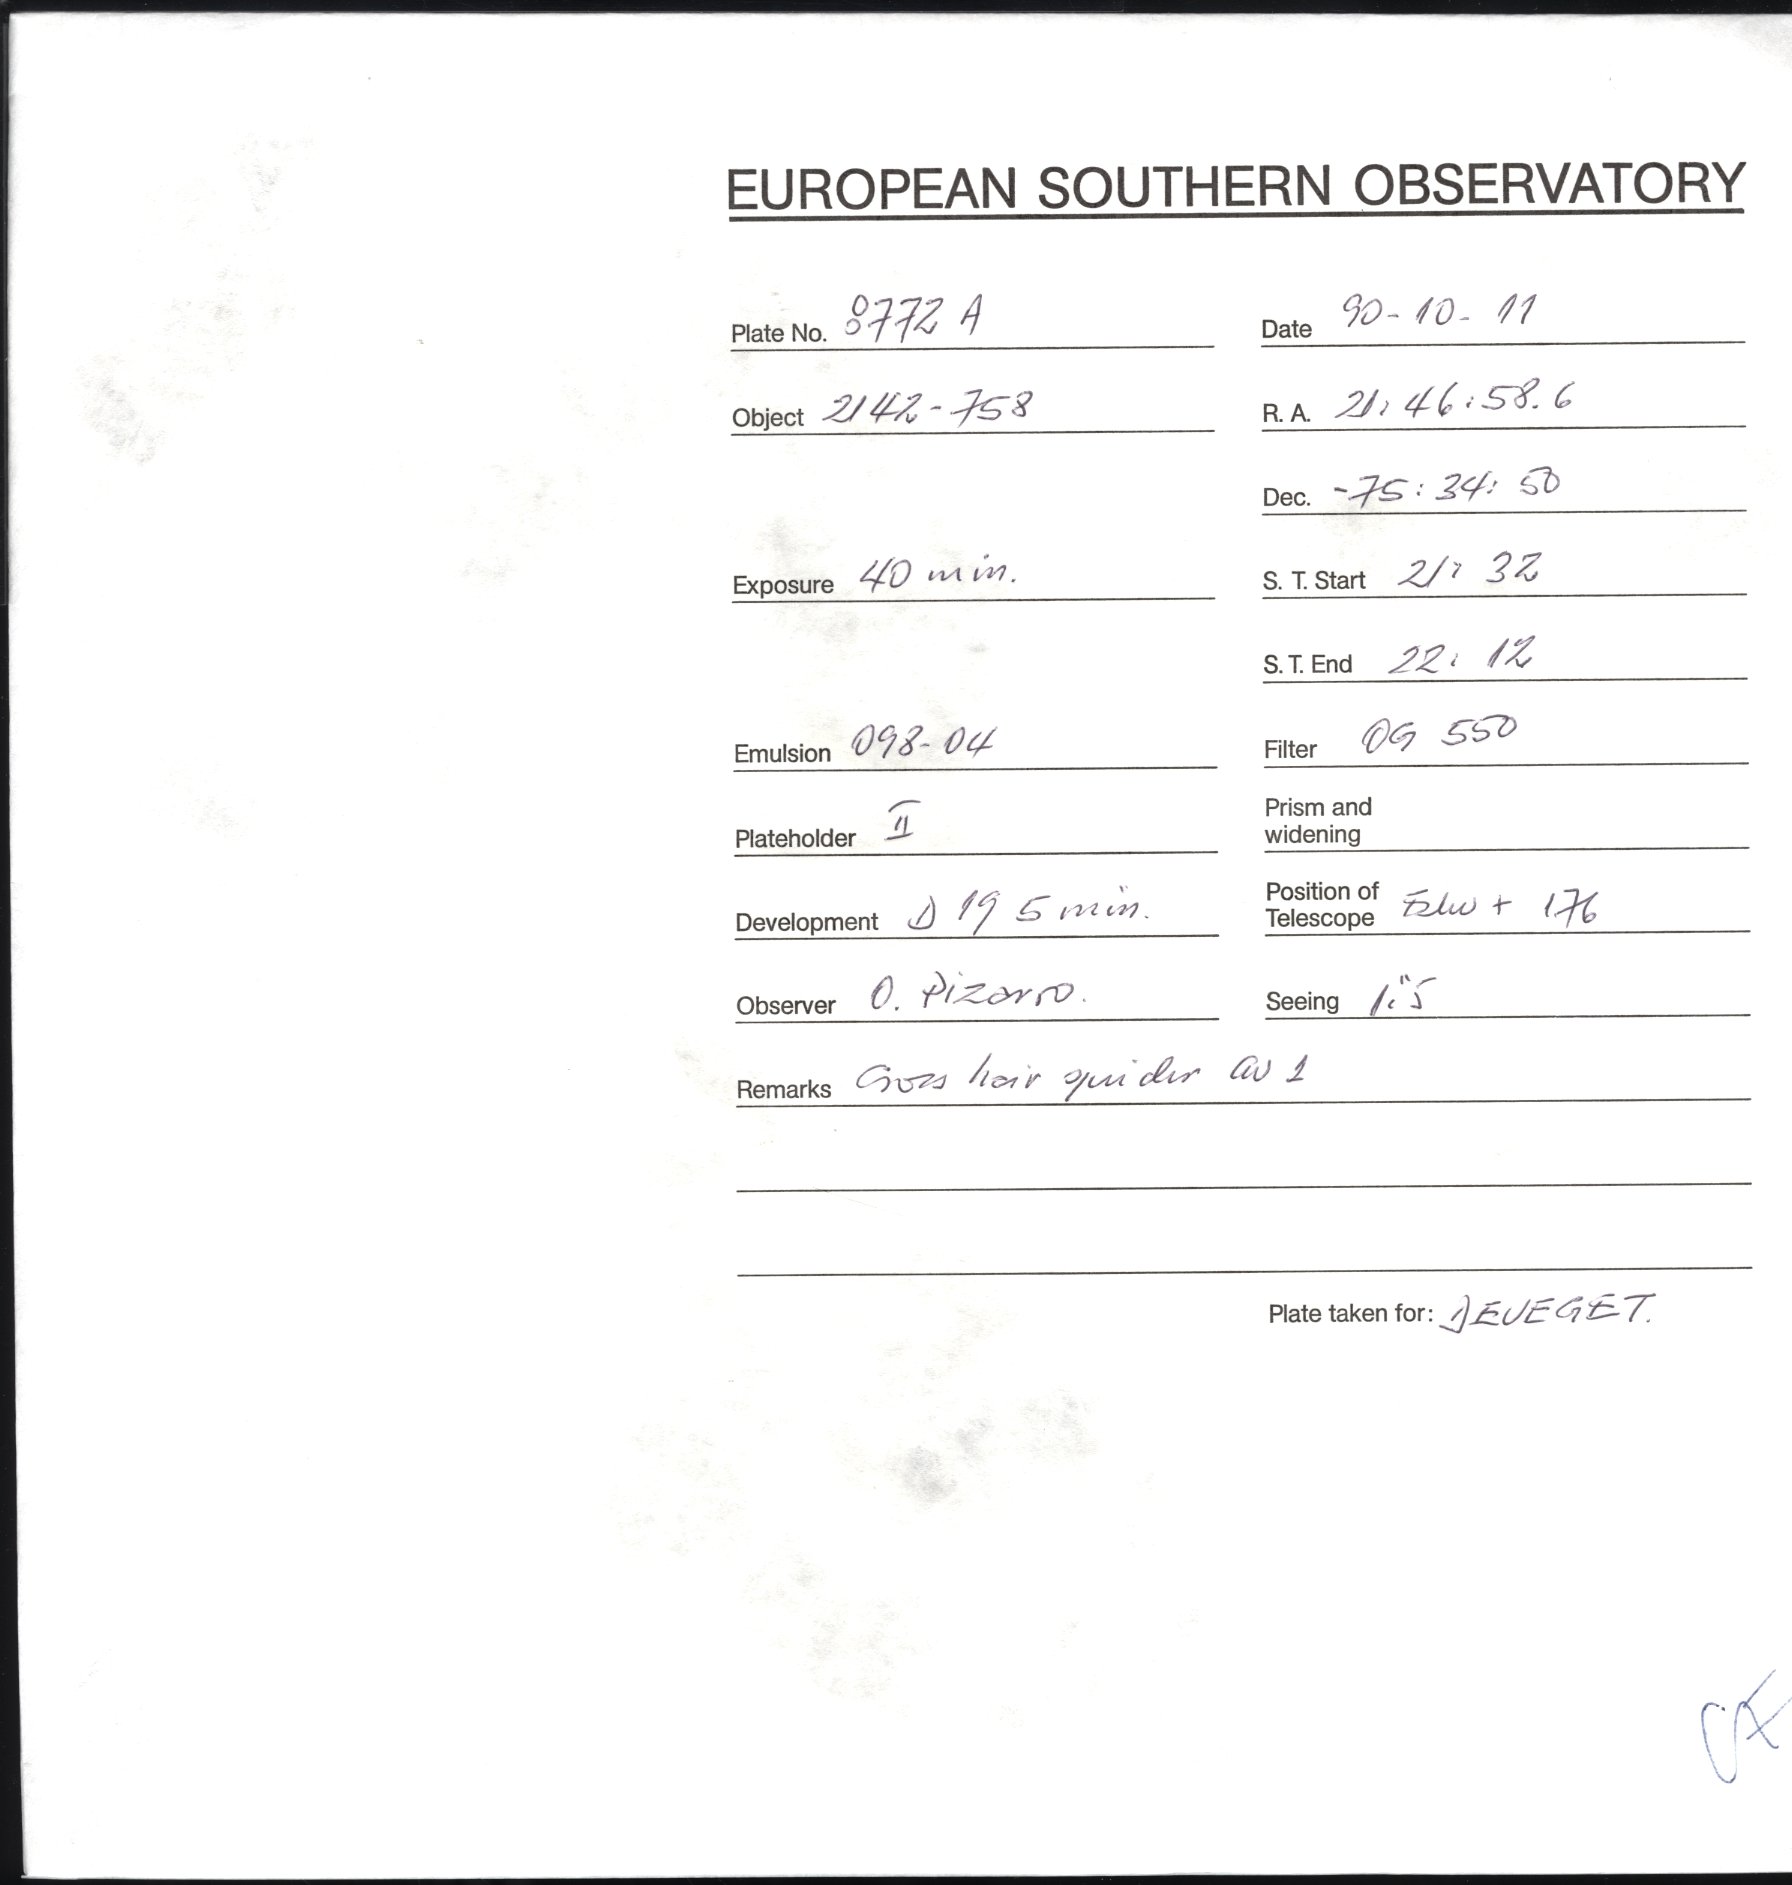 EUROPEAN SOUTHERN OBSERVATORY
Plate No. 8772 A
Date 90-10-11
Object 2142-758
R. A. 21:46:58.6
Dec. -75:34:50
Exposure 40 min.
S. T. Start 21:32
S. T. End 22:12
Emulsion 098-04
Filter OG 550
Plateholder II
Prism and
widening
Development D 19 5 min.
Position of
Telescope + 176
Observer O. Pizarro.
Seeing 1."5
Remarks Cross hair 1
Plate taken for: